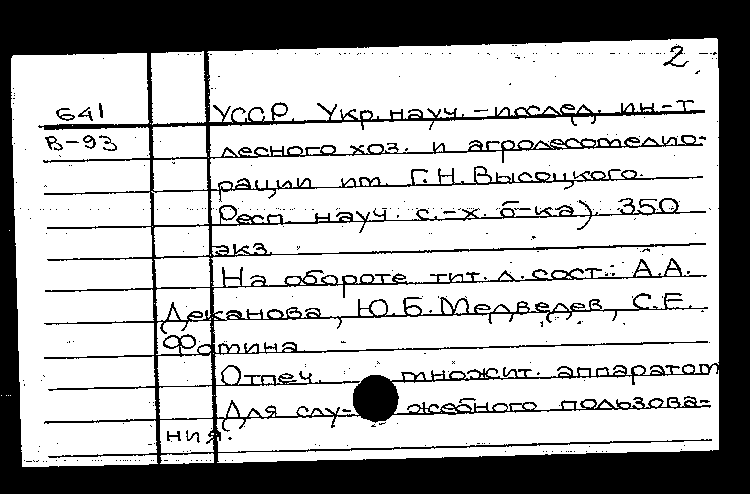 2
641
В-93
УССР. Укр. науч.-исслед. ин-т
лесного хоз. и агролесомелио-
рации им. Г.Н. Высоцкого.
Респ. науч. с.-х. б-ка). 350
экз.
На обороте тит. л. сост.: А.А.
Деканова, Ю.Б. Медведев, С.Е.
Фомина
Отпеч. множит. аппаратом
Для слу- жебного пользова-
ния.